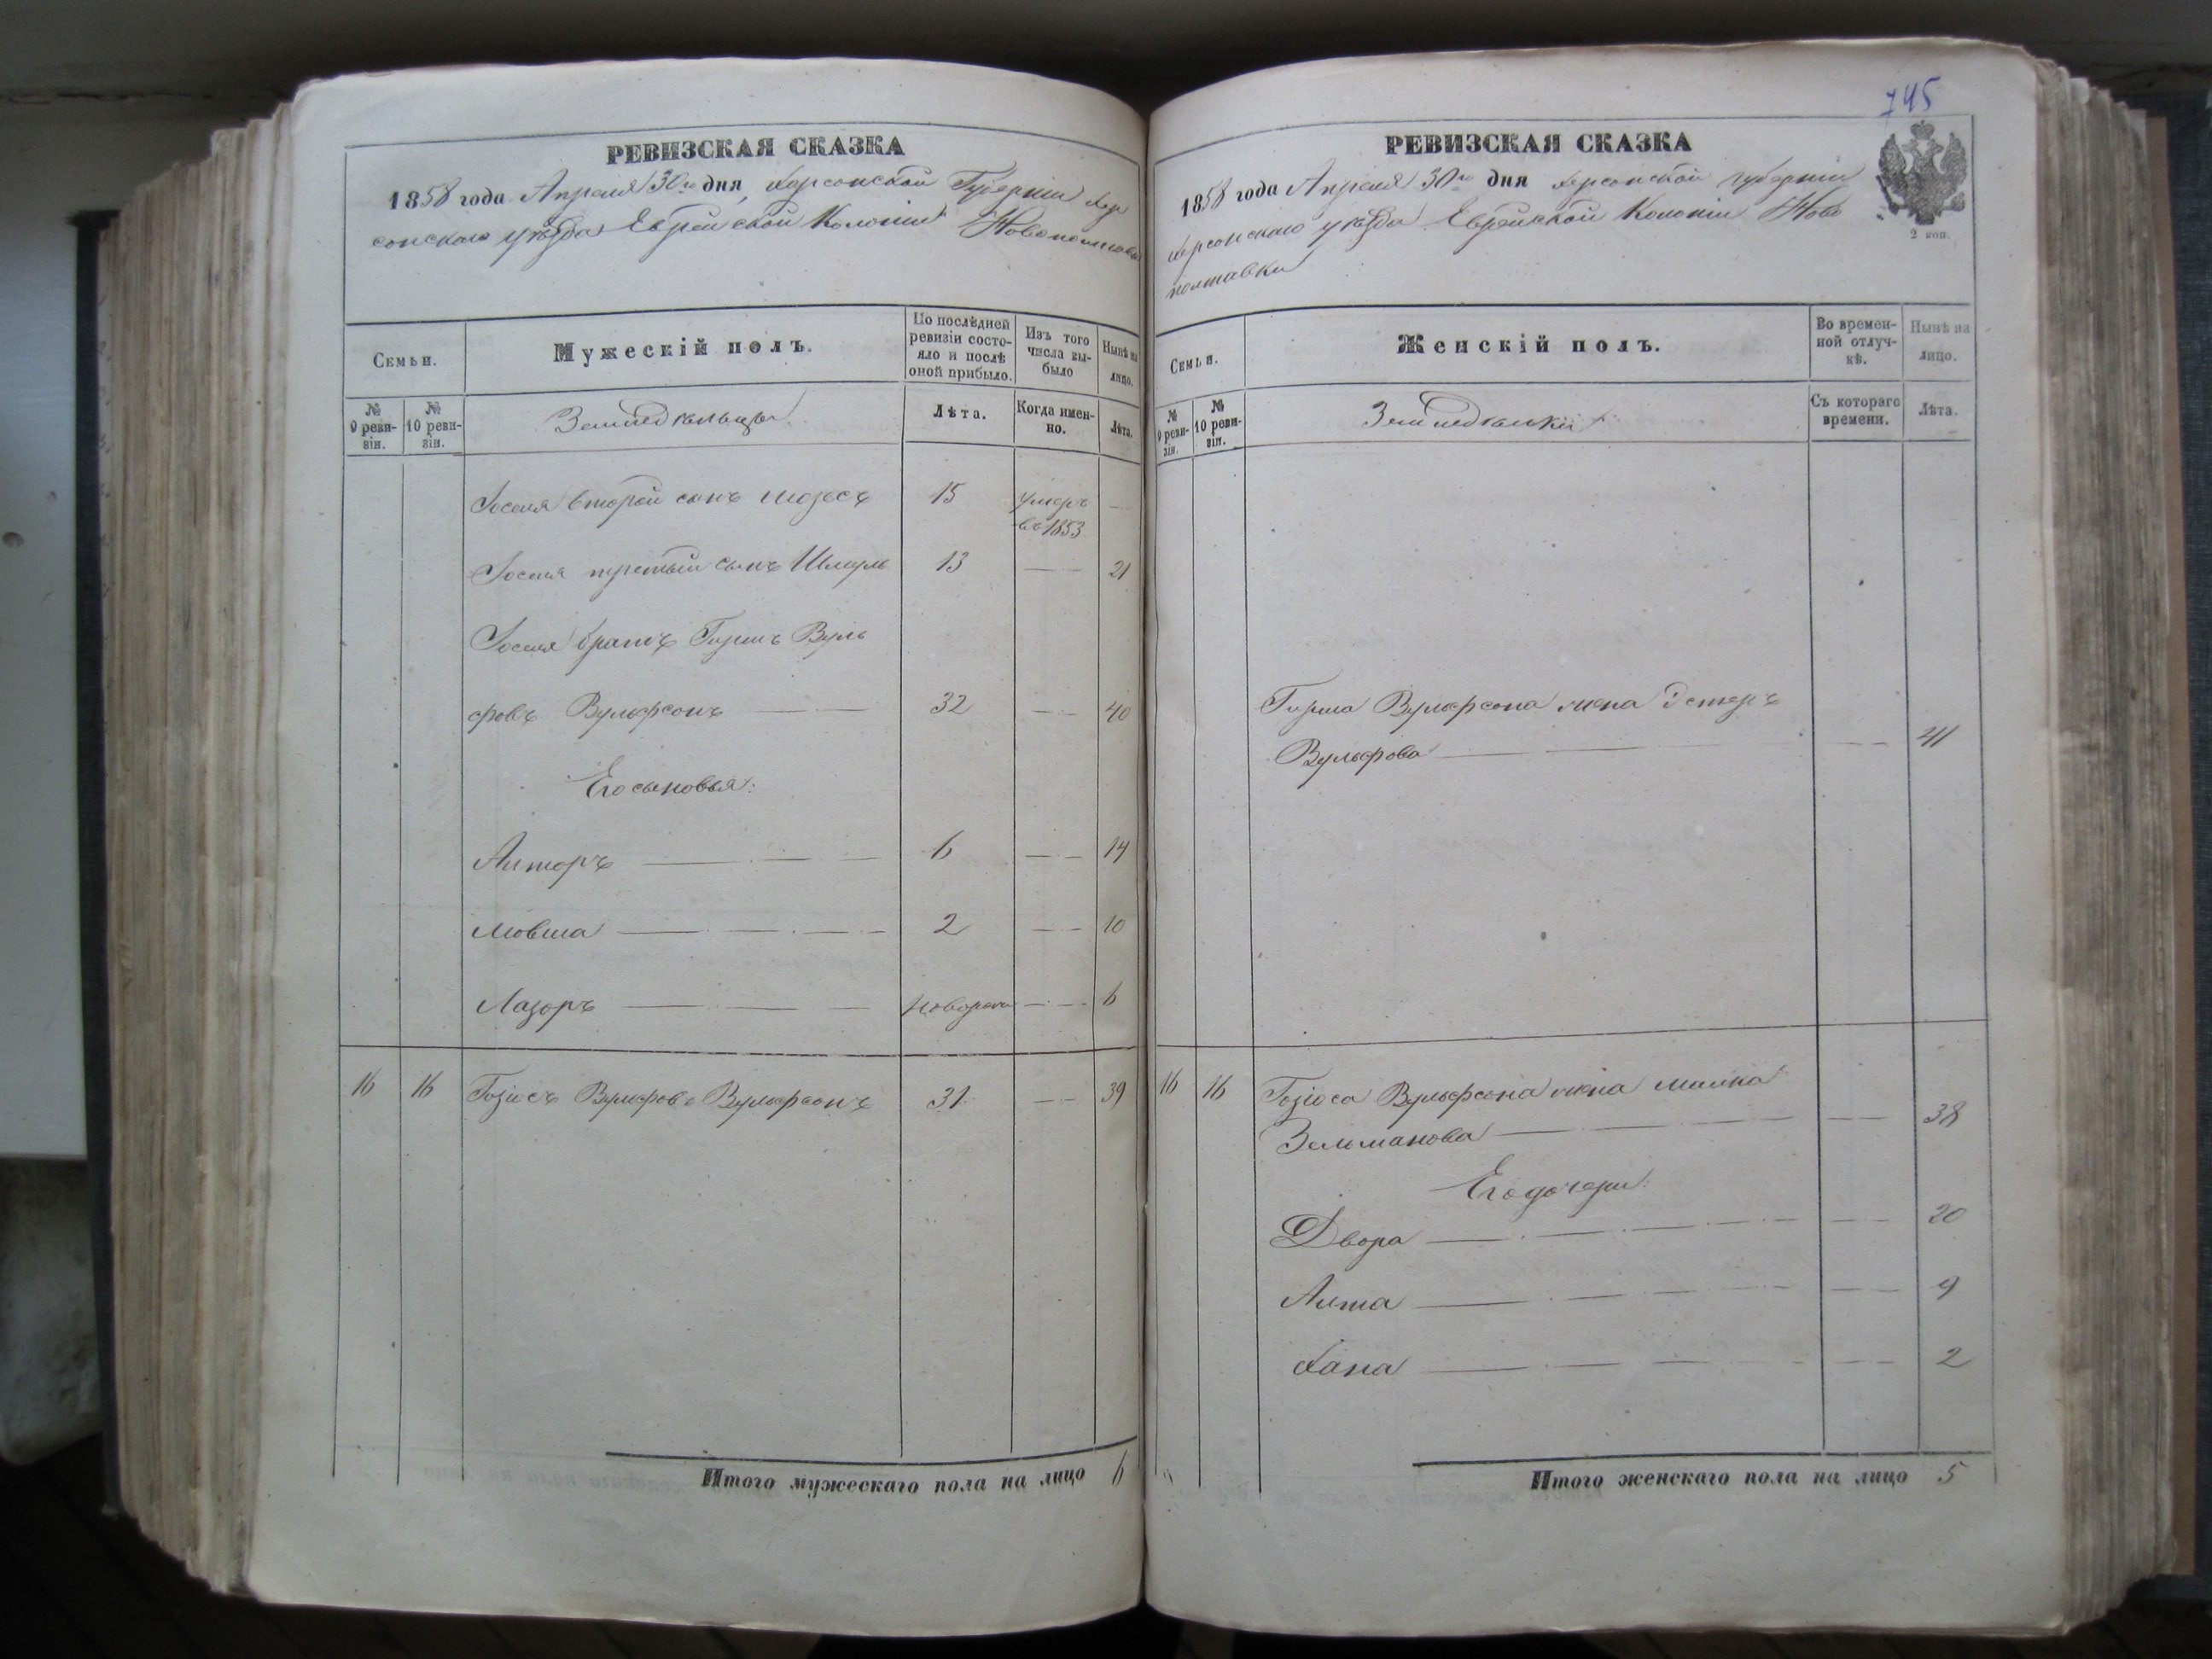 РЕВИЗСКАЯ СКАЗКА
1858 года Апреля 30го дня, Херсонской Губерніи Хер
сонскаго уѣзда Еврейской Колоніи Новополтавки
Семьи.
Мужескій полъ.
По послѣдней ревизіи состояло и послѣ оной прибыло.
Изъ того числа выбыло
Нынѣ на лицо.
№ 9 ревизіи.
№ 10 ревизіи.
Земледѣльцы
Лѣта.
Когда именно.
Лѣта.
Іоселя второй сынъ Мозесъ 15 умеръ въ 1853 —
Іоселя третьій сынъ Шмуль 13 — 21
Іоселя братъ Гиршъ Вуль
фовъ Вульфсонъ — 32 — 40
Его сыновья:
Алтеръ — 6 — 14
Мовша — 2 — 10
Лазоръ — новорож — 6
16 16 Гозіосъ Вульфовъ Вульфсонъ 31 — 39
Итого мужескаго пола на лицо 6
745
РЕВИЗСКАЯ СКАЗКА
2 коп.
1858 года Апреля 30го дня Херсонской губерніи
Херсонскаго уѣзда Еврейской Колоніи Ново
полтавки
Семьи.
Женскій полъ.
Во временной отлучкѣ.
Нынѣ на лицо.
№ 9 ревизіи.
№ 10 ревизіи.
Земледѣлки
Съ котораго времени.
Лѣта.
Гирша Вульфсона жена Эстеръ
Вульфова — — 41
16 16 Гозіоса Вульфсона жена Малка
Зельманова — — 38
Его дочери:
Двора — — 20
Алта — — 9
Хана — — 2
Итого женскаго пола на лицо 5